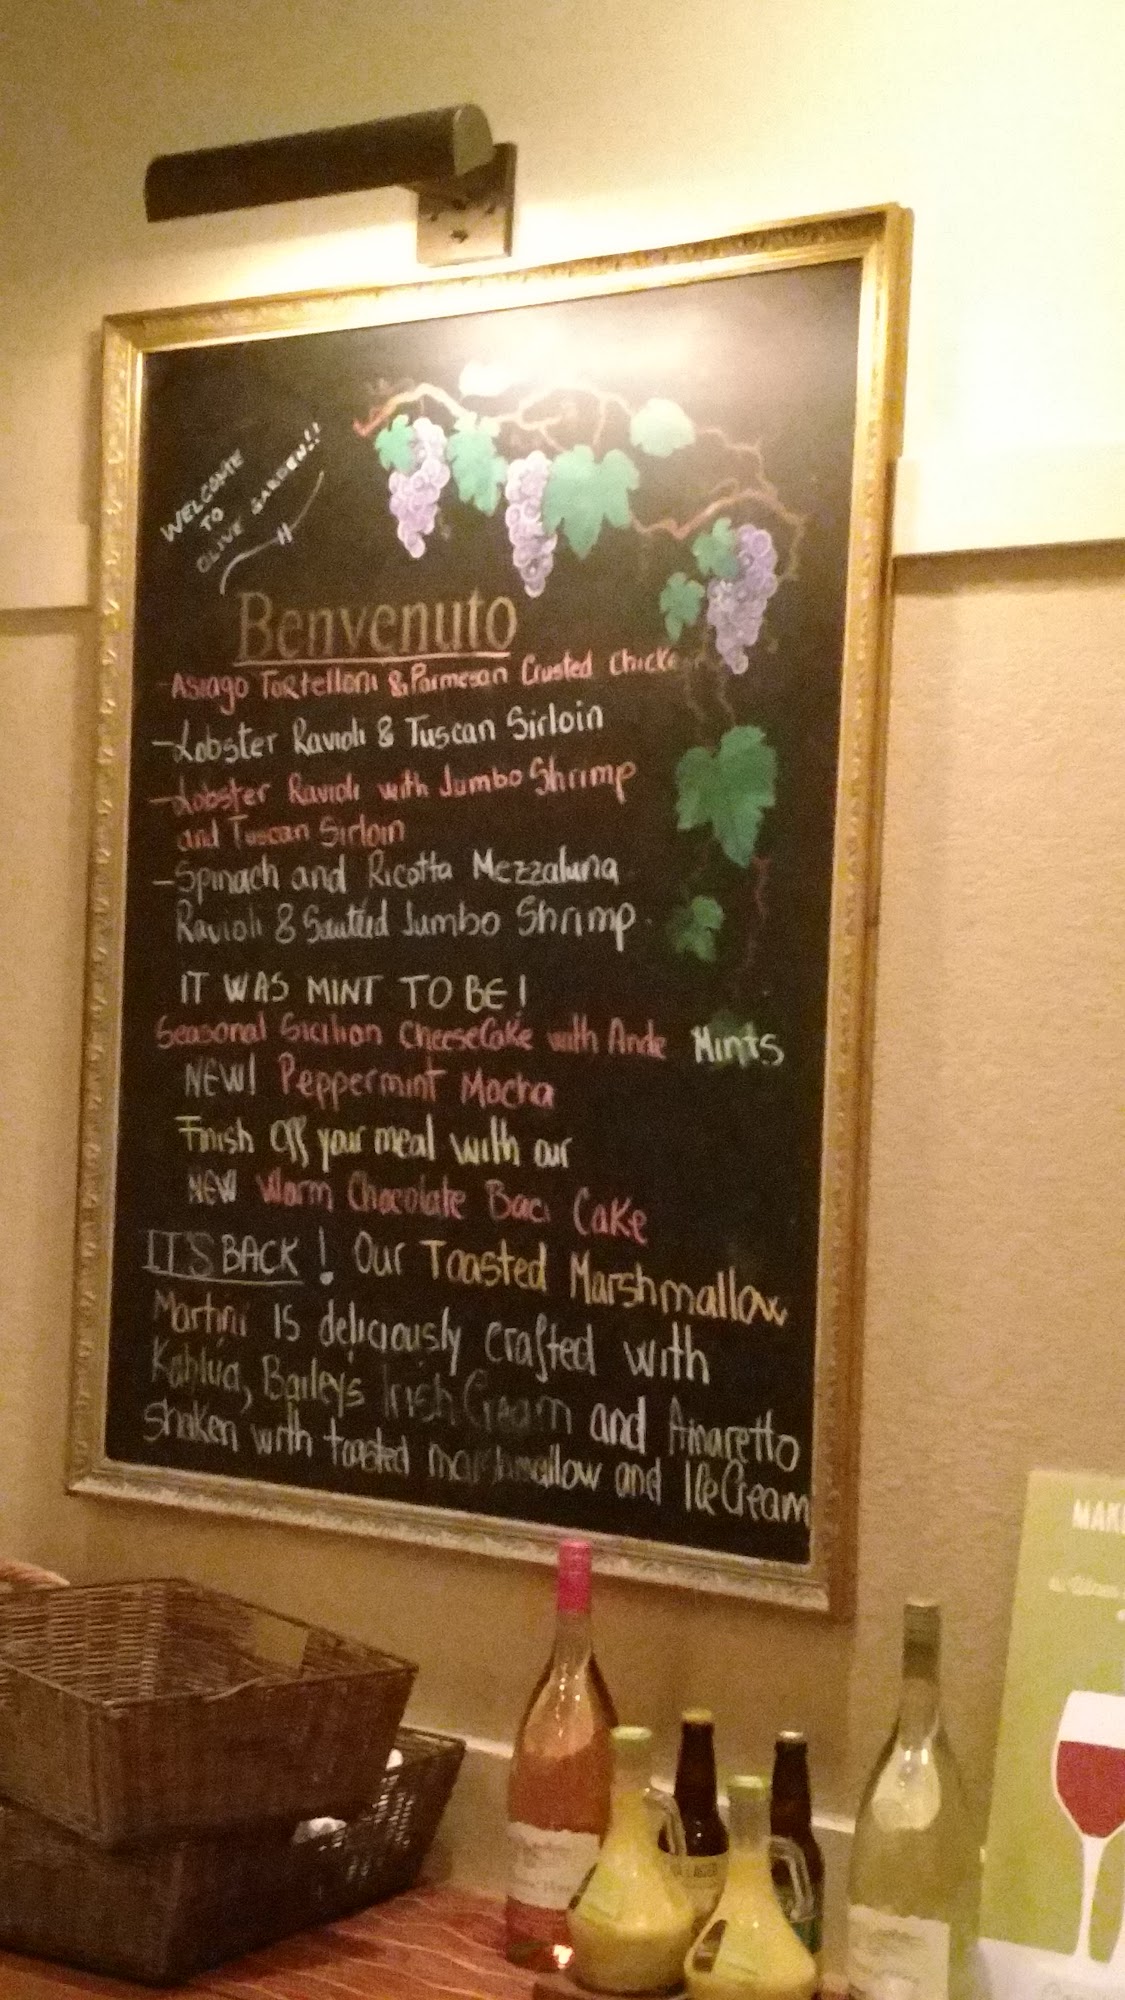 WELCOME
TO
OLIVE GARDEN!!
Benvenuto
-Asiago Tortelloni & Parmesan Crusted Chicke
-Lobster Ravioli & Tuscan Sirloin
-Lobster Ravioli with Jumbo Shrimp
and Tuscan Sirloin
-Spinach and Ricotta Mezzaluna
Ravioli & Sautéed Jumbo Shrimp.
IT WAS MINT TO BE!
Seasonal Sicilian CheeseCake with Ande Mints
NEW! Peppermint Mocha
Finish off your meal with our
NEW Warm Chocolate Baci Cake
IT'S BACK! Our Toasted Marshmallow
Martini is deliciously crafted with
Kahlúa, Bailey's Irish Cream and Amaretto
shaken with toasted marshmallow and Ice Cream
MAK